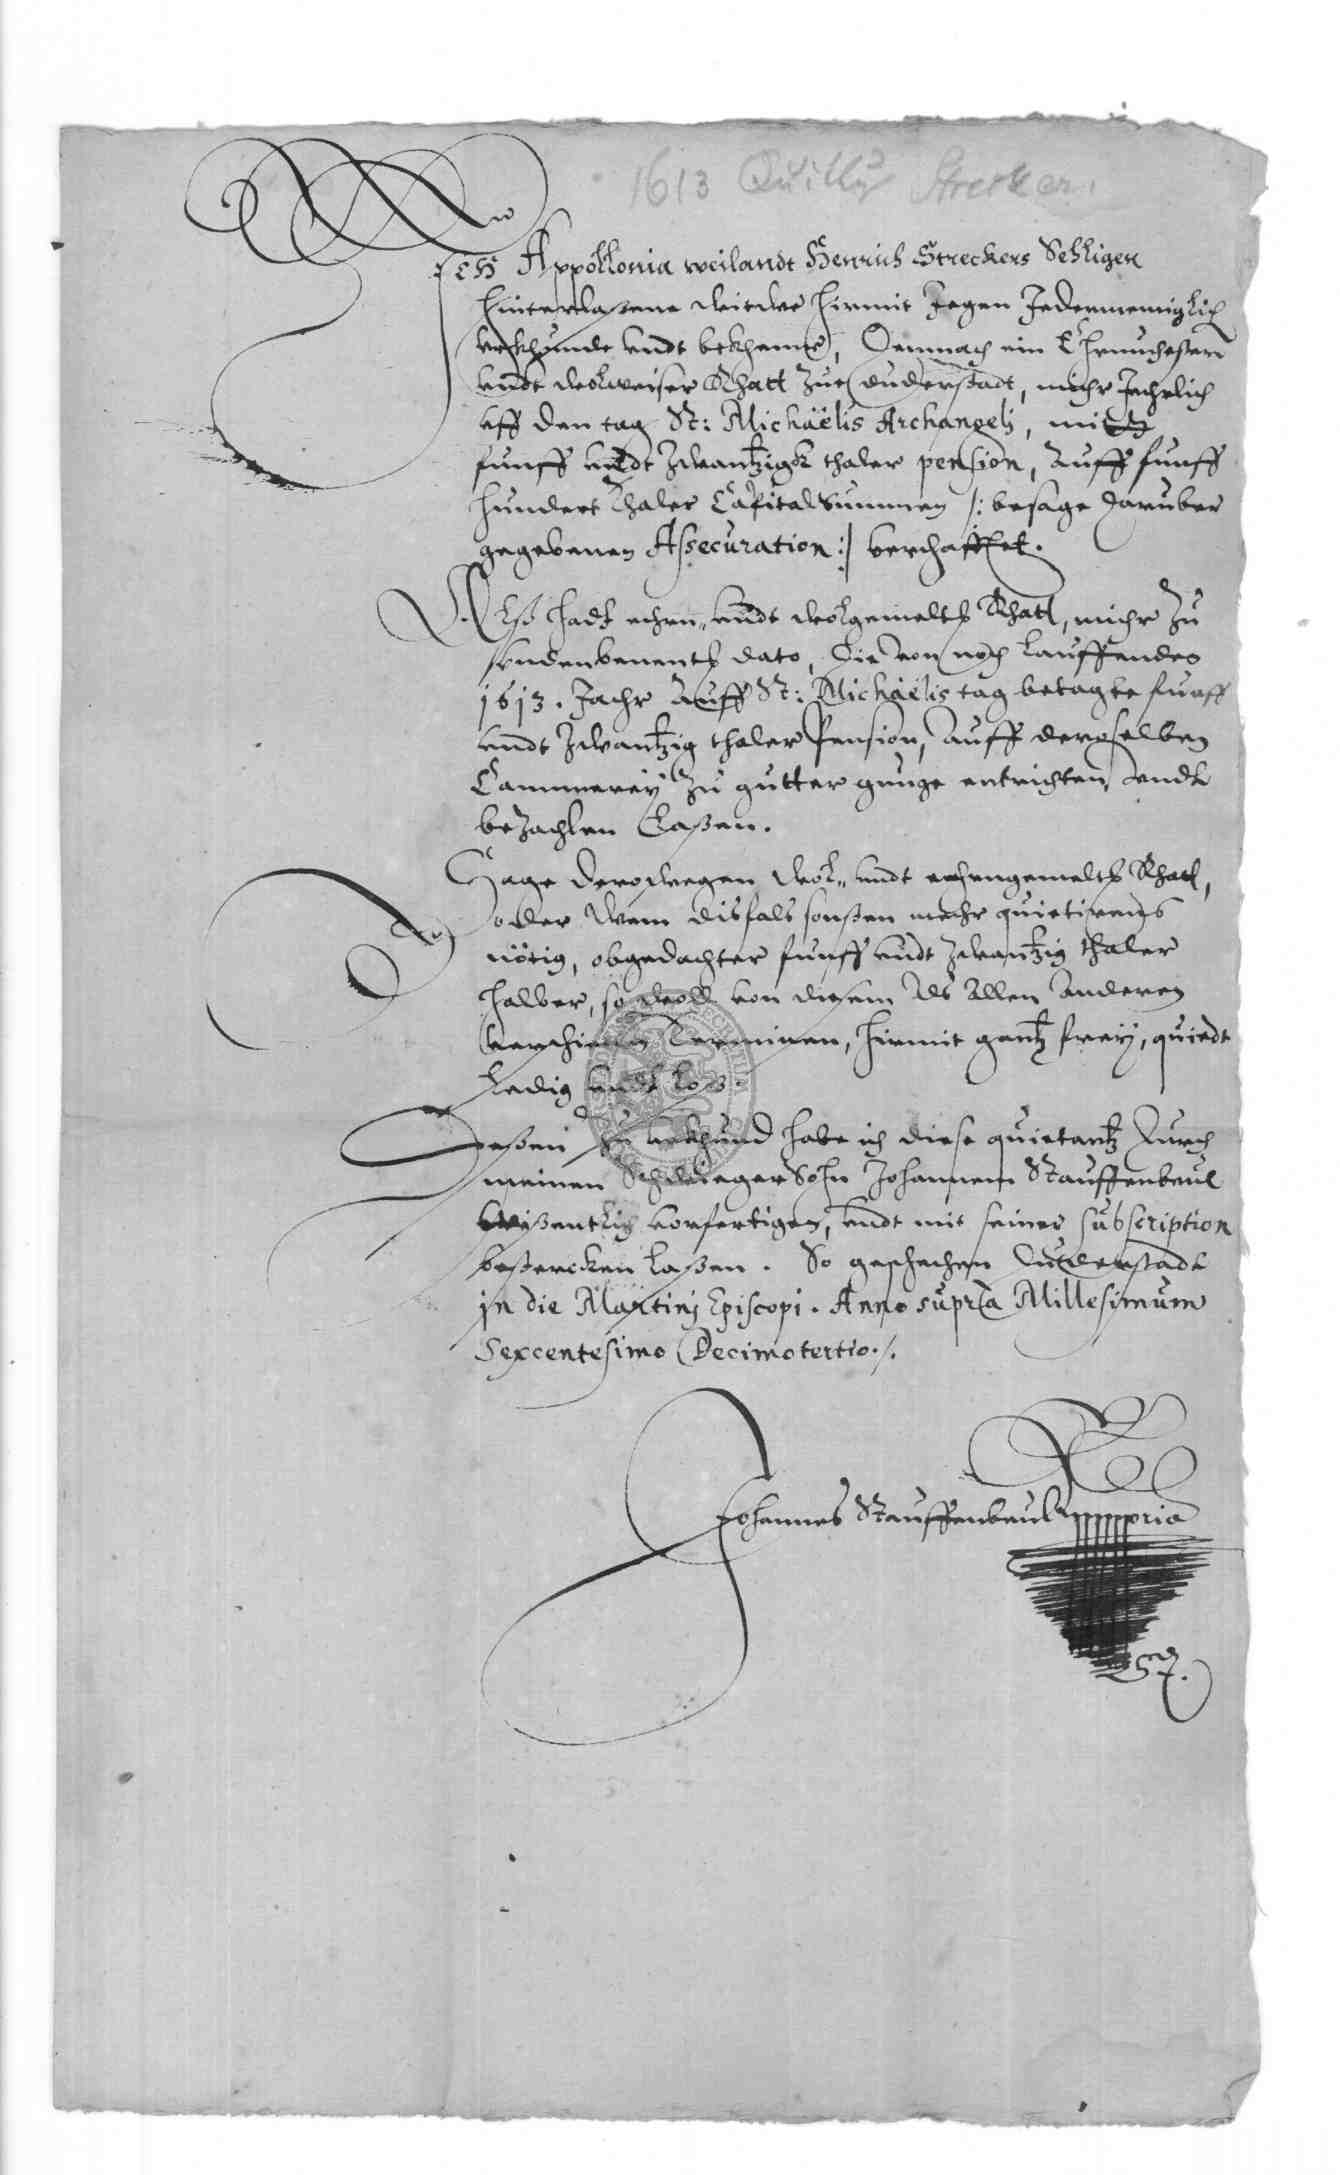 1613 Strecker
Ich Appollonia weilandt Henrich Streckers Sehligen
hinterlaßene witwe hirmit Jegen Jedermenniglich
uhrkunde undt bekhenne, Demnach ein Ehrnuchester
undt wolweiser Rhatt zue Duderstadt, mihr Jehrlich
uff den tag St: Michaëlis Archangeli, mitt
funff undt zwantzigk thaler pension, auff funff
hundert Thaler Capital Summen /: besage daruber
gegebenen Assecuration :/ verschafft.
Alß hadt ehrn- undt wolgemelts Rhatt, mihr zu
endenbenents dato, die von noch lauffendes
1613. Jahr auff St: Michaëlis tag betagte funff
undt zwantzig thaler Pension, auff deroselben
Cammereÿ zu gutter gnuge entrichten undt
bezachlen laßen.
Sage derowegen wol- undt ehrngemelts Rhatt,
oder wem disfals sonsten mehr quietirens
nötig, obgedachter funff undt zwantzig thaler
halber, so woll von diesem als allen anderen
Terminen, hirmit gantz freÿ, quiedt
Ledig undt loß.
Deßen zu uhrkhund habe ich diese quietantz durch
meinen Schwieger Sohn Johannem Stauffenbeul
wißentlich vorfertigen, undt mit seiner subscription
bestercken laßen. So geschehen Duderstadt
in die Martini Episcopi. Anno supra Millesimum
Sexcentesimo Decimotertio./.
Johannes Stauffenbeul mppria